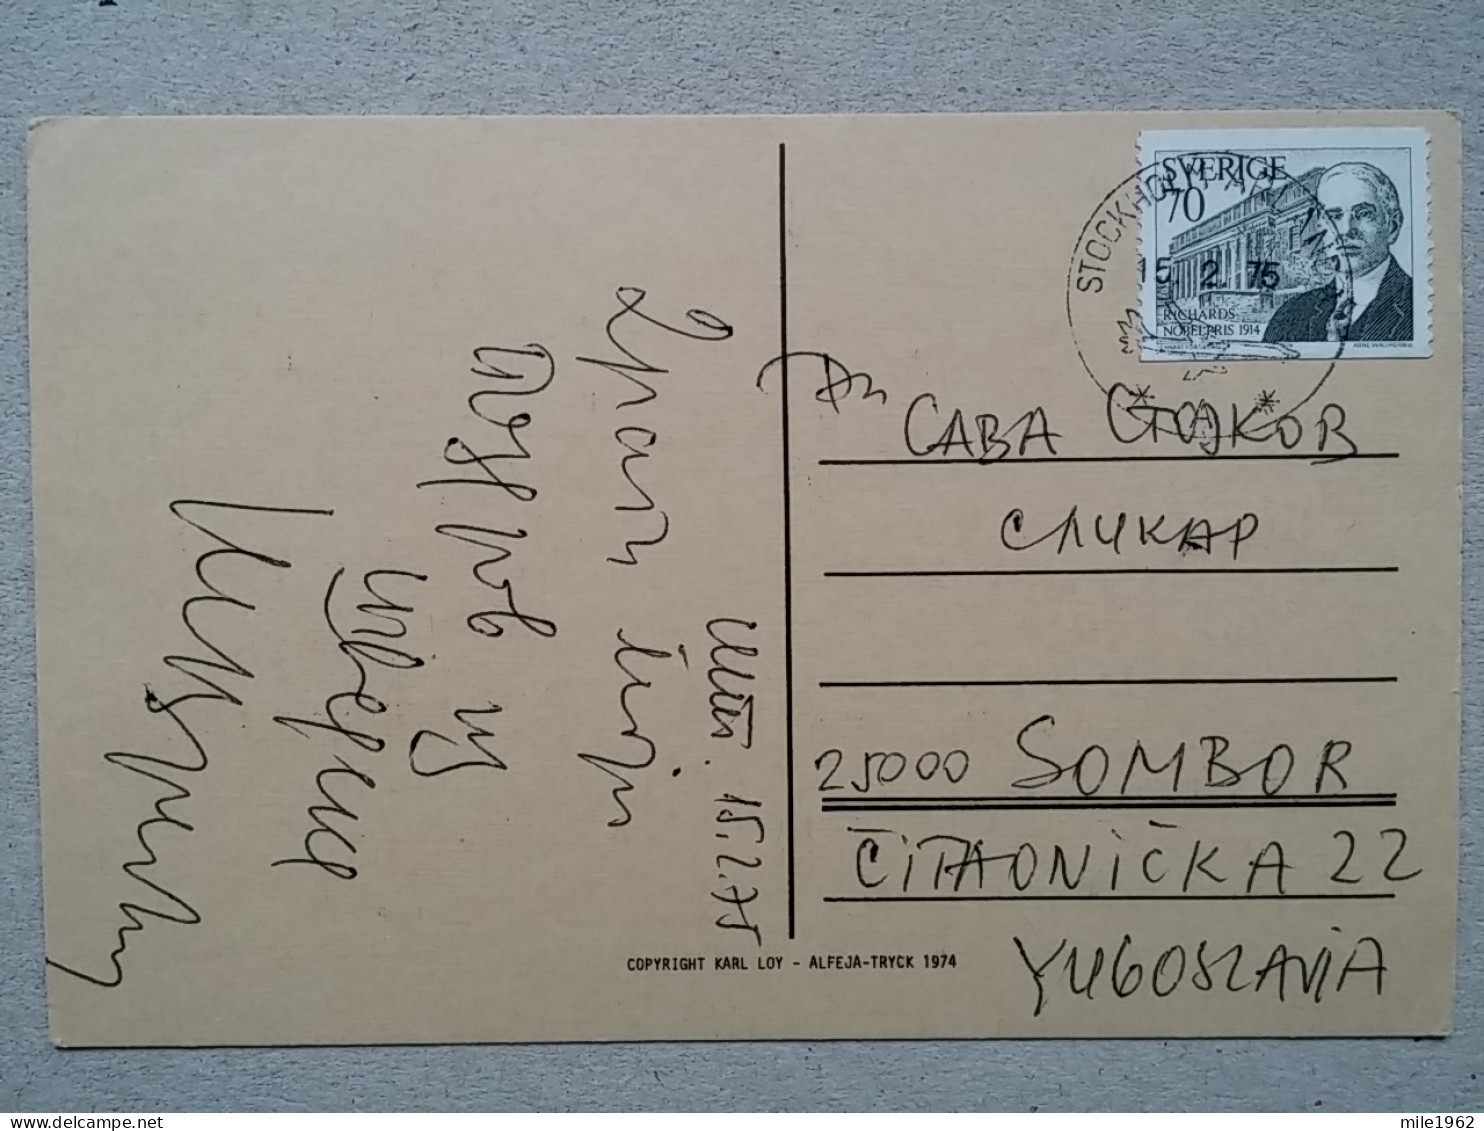 Шт. 15.2.75
Драги
Поздрав из
Шведске
SVERIGE
70
RICHARDS
NOBELPRIS 1914
STOCKHOLM
15. 2. 75
САВА СТОЈКОВ
СЛИКАР
25000 SOMBOR
ČITAONIČKA 22
YUGOSLAVIA
COPYRIGHT KARL LOY - ALFEJA-TRYCK 1974
mile1962